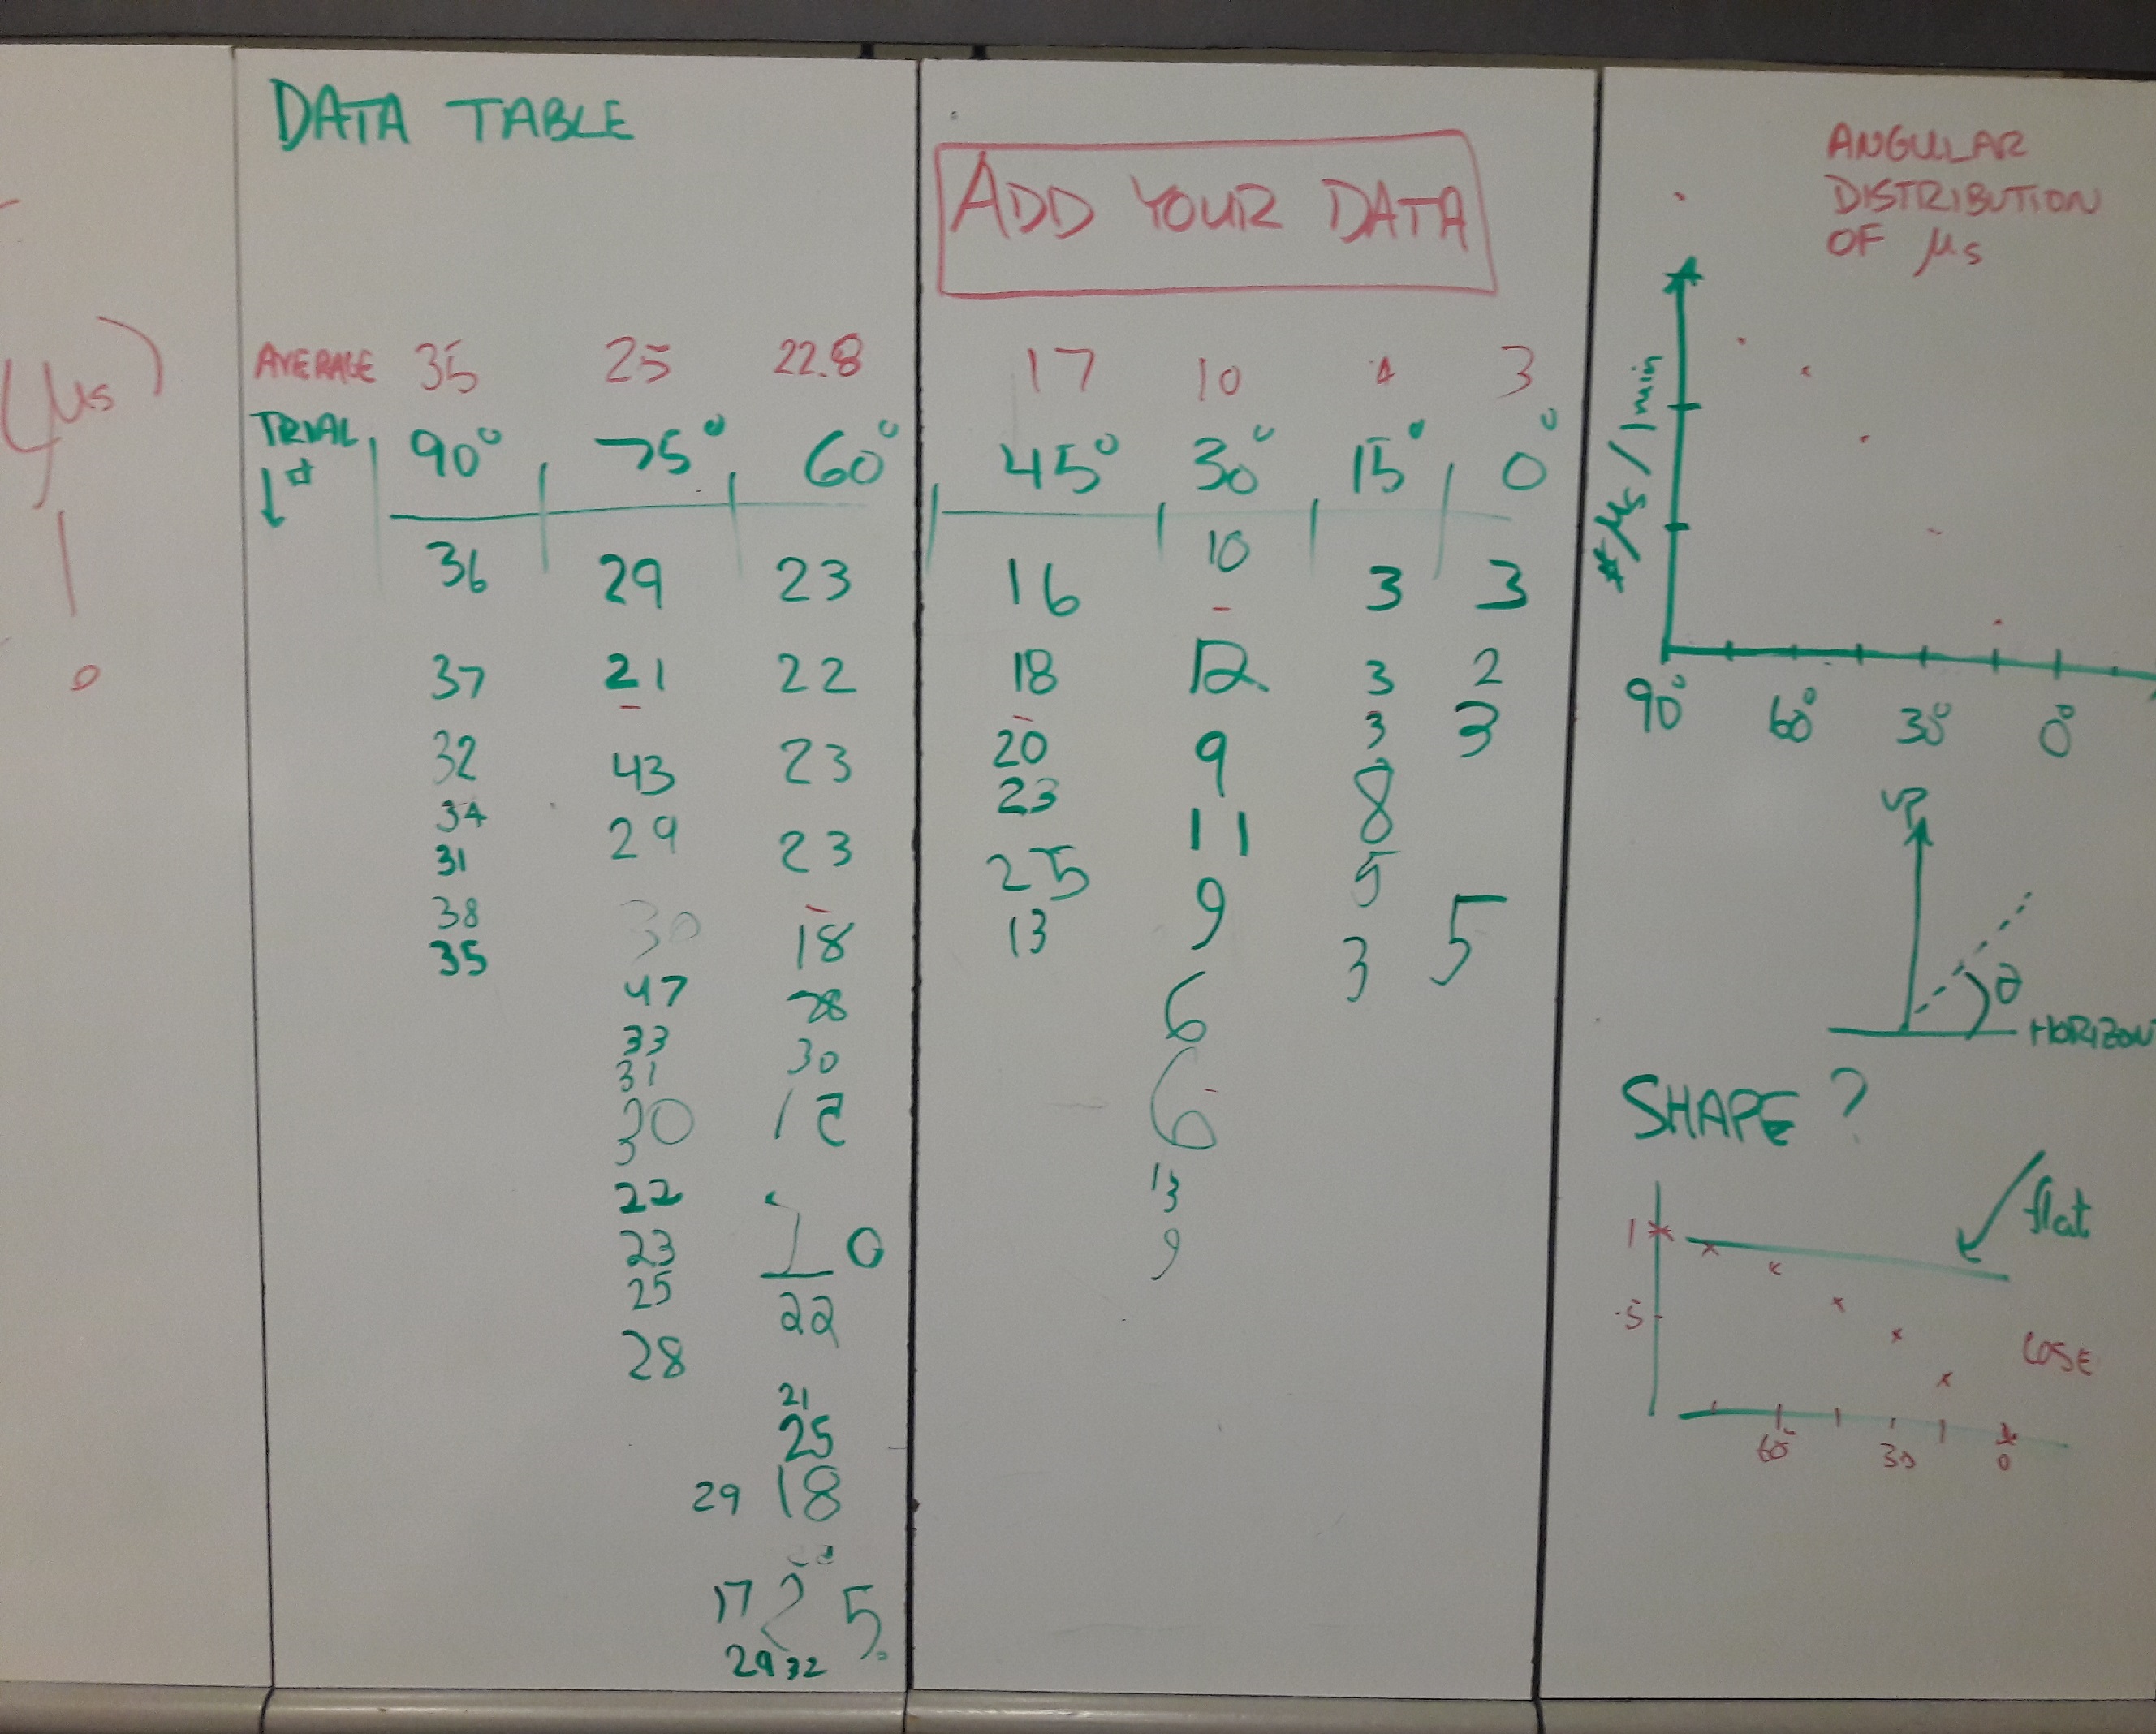 (μs)
DATA TABLE
ADD YOUR DATA
AVERAGE 35 25 22.8 17 10 4 3
TRIAL # 90° 75° 60° 45° 30° 15° 0°
36 29 23 16 10 3 3
37 21 22 18 12 3 2
32 43 23 20 9 3 3
34 29 23 23 11 8 5
31 30 18 25 9 5
38 47 28 13 6 3
35 33 30 6
31 13
30 9
22 22
23 21
25 25
28 29 18
17 25
29 32
ANGULAR
DISTRIBUTION
OF μs
#μs / 1min
90° 60° 30° 0°
UP
θ
HORIZON
SHAPE?
flat
1
.5
60° 30 0